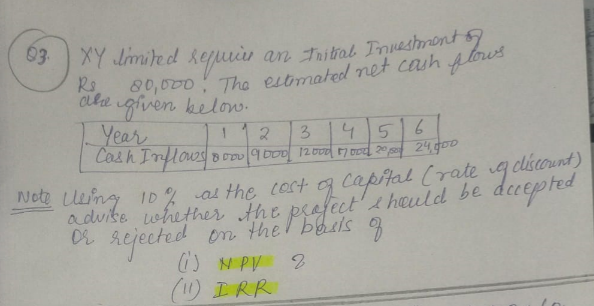 Q3. XY limited requires an Initial Investment of
Rs 80,000. The estimated net cash flows
are given below.
Year 1 2 3 4 5 6
Cash Inflows 8000 9000 12000 17000 20,000 24,500
Note Using 10% as the cost of capital (rate of discount)
advise whether the project should be accepted
or rejected on the basis of
(i) NPV &
(ii) IRR